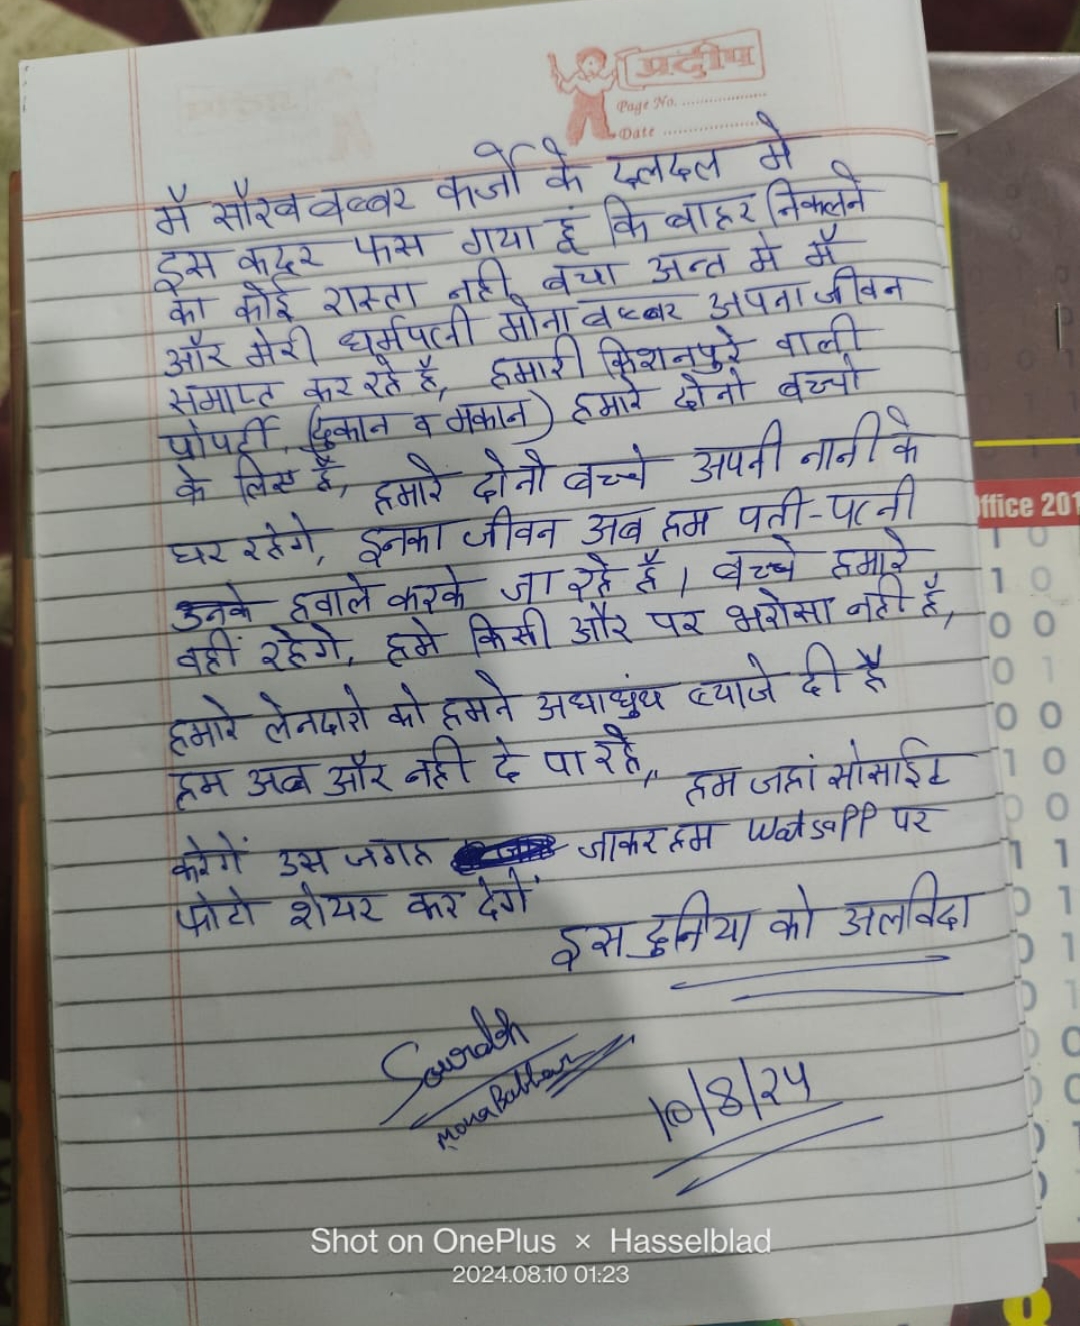 प्रदीप
Page No. ....................
Date ....................
मैं सौरव बब्बर कर्जो के दलदल मे
इस कदर फस गया हूं कि बाहर निकलने
का कोई रास्ता नही बचा अन्त मे मैं
और मेरी धर्मपत्नी मोना बब्बर अपना जीवन
समाप्त कर रहे है, हमारी किशनपुरे वाली
प्रोपर्टी, (दुकान व मकान) हमारे दोनो बच्चो
के लिए है, हमारे दोनो बच्चे अपनी नानी के
घर रहेगे, इनका जीवन अब हम पती-पत्नी
उनके हवाले करके जा रहे है। बच्चे हमारे
वहीं रहेगे, हमे किसी और पर भरोसा नही है,
हमारे लेनदारो को हमने अधाधुंध ब्याजे दी है
हम अब और नही दे पा रहे,, हम जहां सोसाईट
करेगें उस जगह जाकर हम Watsapp पर
फोटो शेयर कर देगें
इस दुनिया को अलविदा
Sourabh
Mona Babbar
10/8/24
ffice 201
Shot on OnePlus × Hasselblad
2024.08.10 01:23